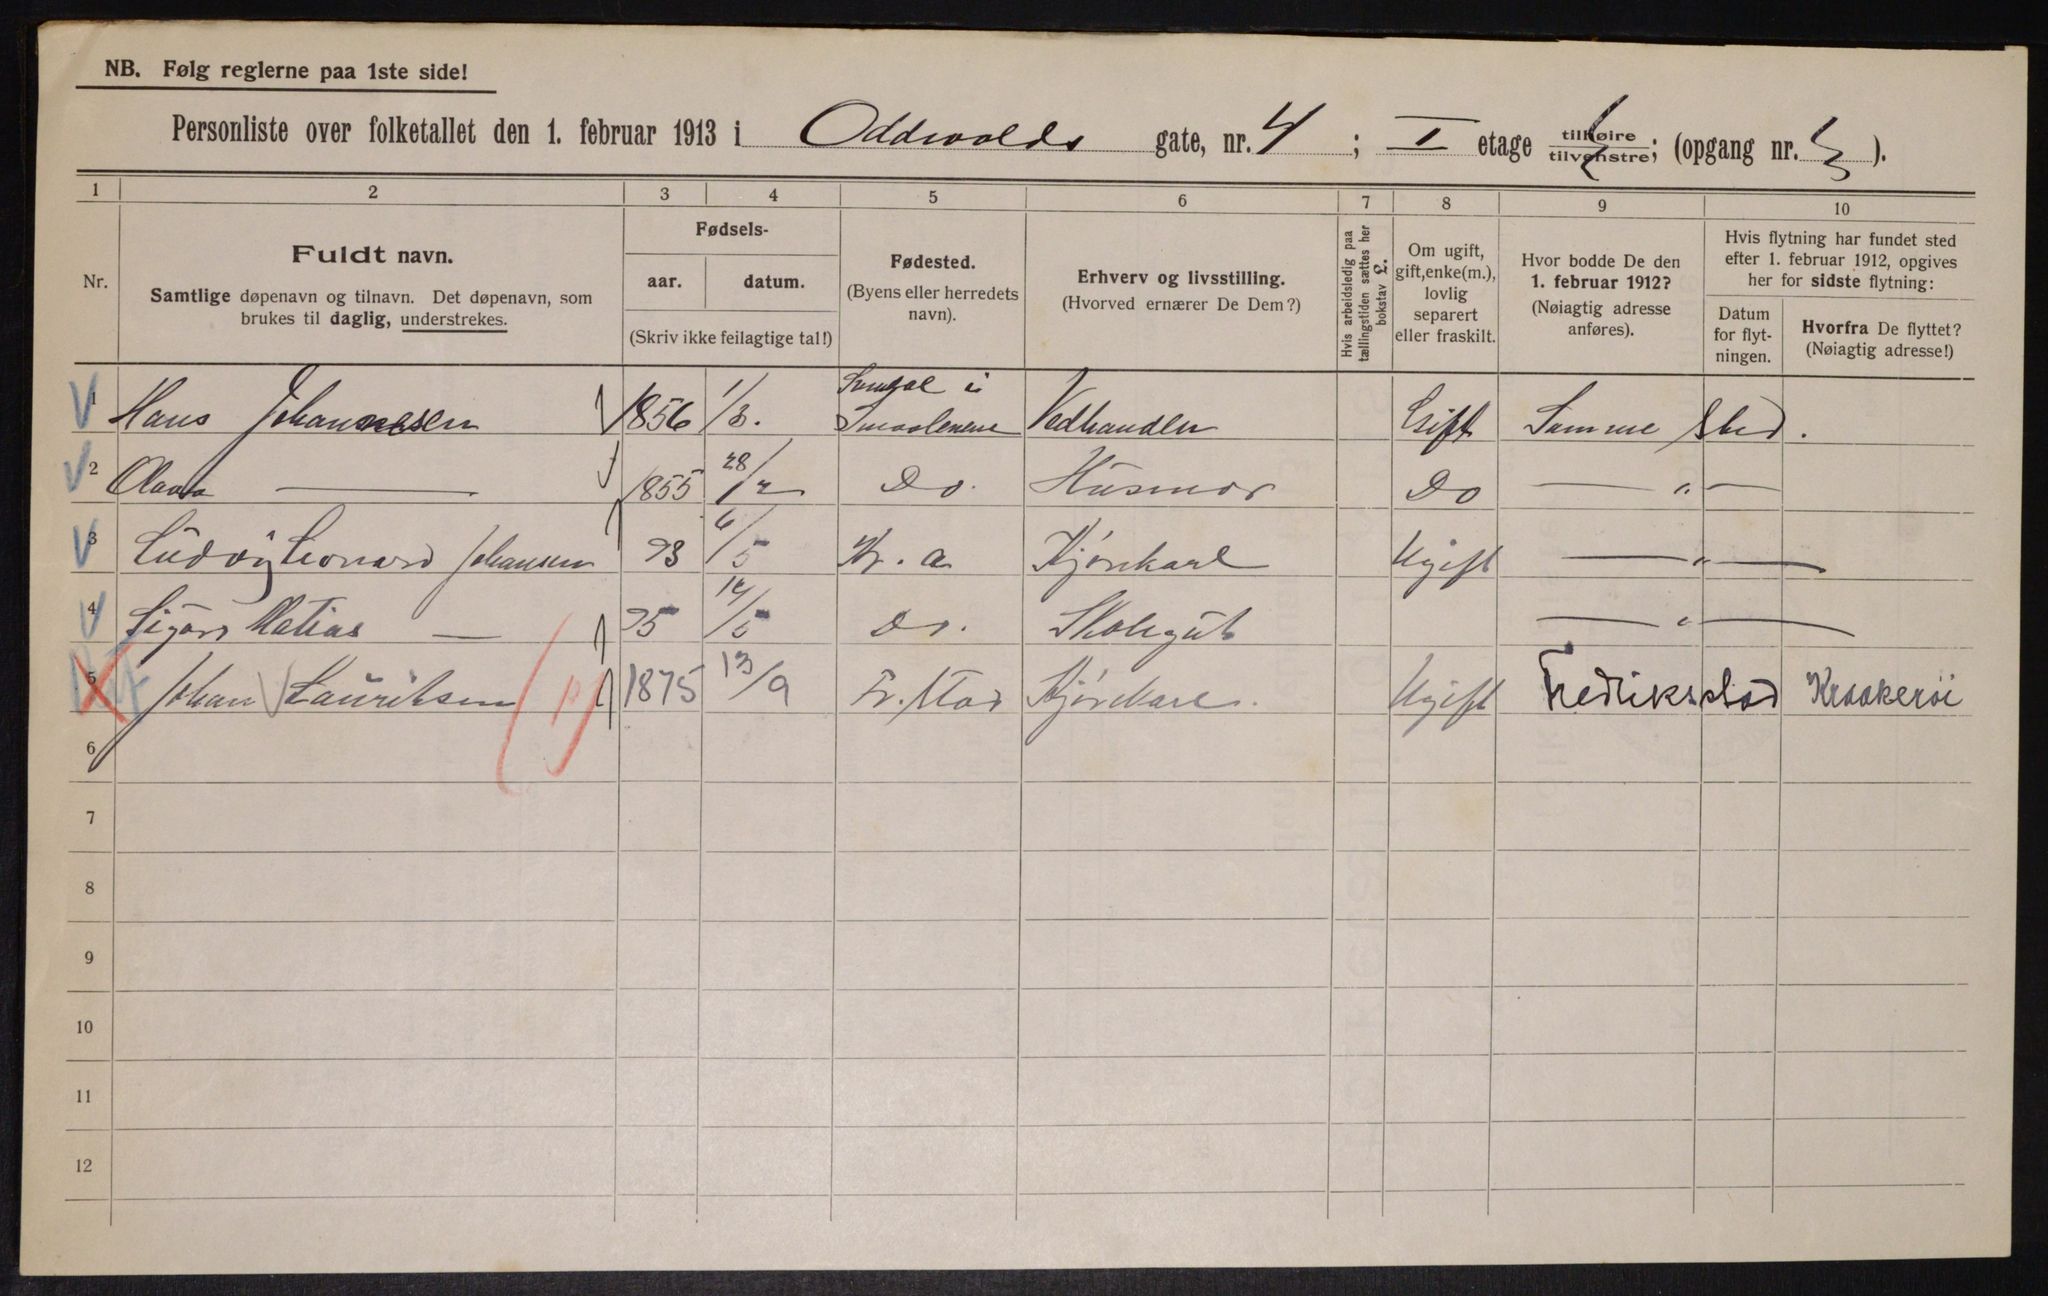 NB. Følg reglerne paa 1ste side!
Personliste over folketallet den 1. februar 1913 i Oddvalds gate, nr. 4; I etage tilhøire tilvenstre; (opgang nr. ).
1 2 3 4 5 6 7 8 9 10
Nr.
Fuldt navn.
Samtlige døpenavn og tilnavn. Det døpenavn, som
brukes til daglig, understrekes.
Fødsels-
aar. datum.
(Skriv ikke feilagtige tal!)
Fødested.
(Byens eller herredets
navn).
Erhverv og livsstilling.
(Hvorved ernærer De Dem?)
Hvis arbeidsledig paa
tællingstiden sættes her
bokstav £.
Om ugift,
gift, enke(m.),
lovlig
separert
eller fraskilt.
Hvor bodde De den
1. februar 1912?
(Nøiagtig adresse
anføres).
Hvis flytning har fundet sted
efter 1. februar 1912, opgives
her for sidste flytning:
Datum
for flyt-
ningen.
Hvorfra De flyttet?
(Nøiagtig adresse!)
1 Hans Johannesen 1856 1/3. i Smaalenene Vedhandler Gift Samme Sted.
2 Olava — 1855 28/2 Do. Husmor Do — " —
3 Ludvig Leonard Johansen 93 6/5 Kr. a Kjørekarl Ugift — " —
4 Sigurd Matias — 95 14/5 Do. Skolegut — " —
5 Johan Lauritsen 1875 13/9 Fr. stad Kjørekarl. Ugift Fredrikstad Kraakerøi
6
7
8
9
10
11
12